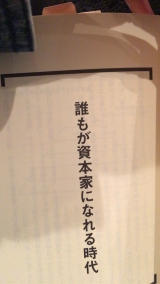 誰もが資本家になれる時代